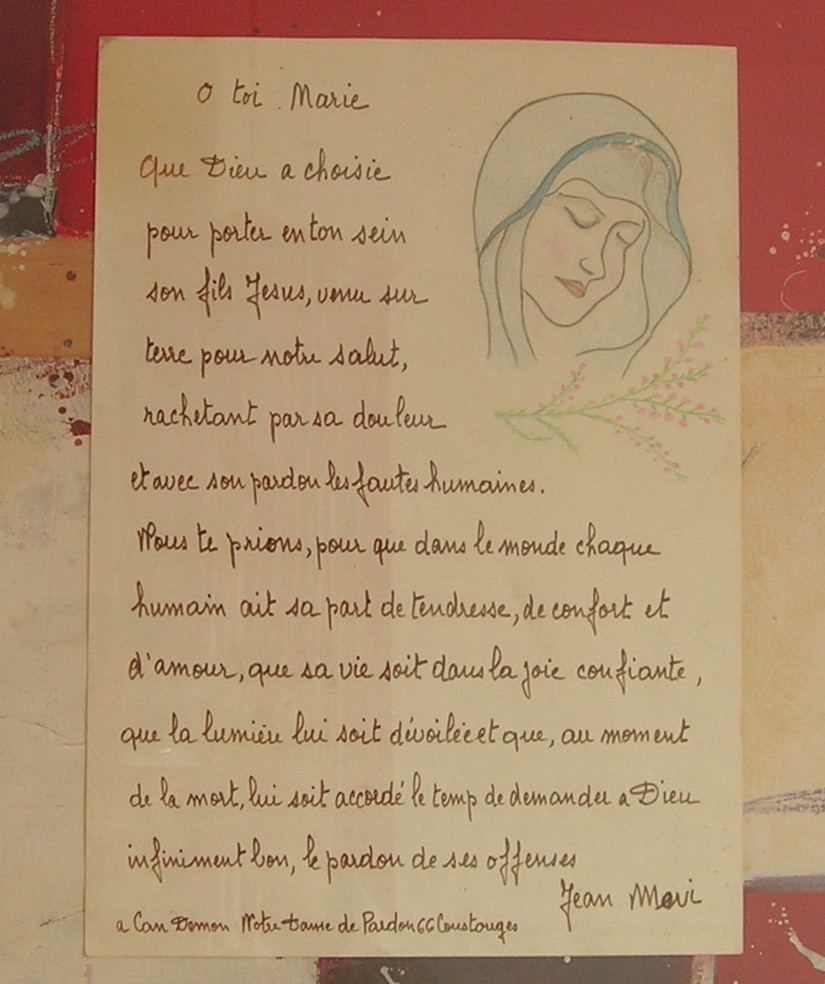 O toi Marie
Que Dieu a choisie
pour porter en ton sein
son fils Jesus, venu sur
terre pour notre salut,
rachetant par sa douleur
et avec son pardon les fautes humaines.
Nous te prions, pour que dans le monde chaque
humain ait sa part de tendresse, de confort et
d'amour, que sa vie soit dans la joie confiante,
que la lumière lui soit dévoilée et que, au moment
de la mort, lui soit accordé le temp de demander a Dieu
infiniment bon, le pardon de ses offenses
Jean Mavi
a Can Demon Notre Dame de Pardon 66 Coustouges